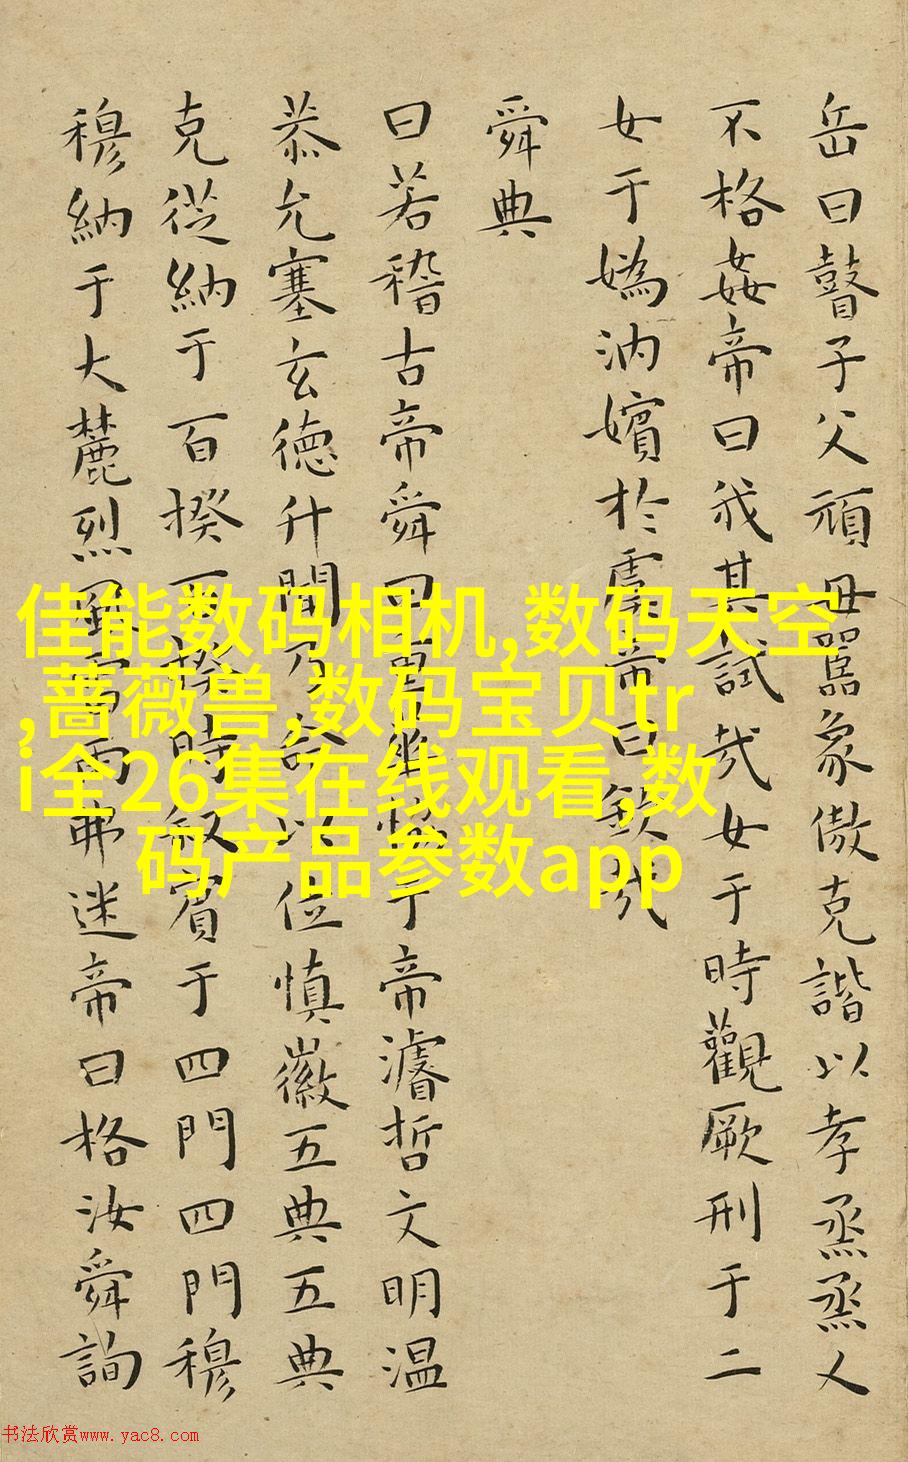 岳曰瞽子父頑母嚚象傲克諧以孝烝烝乂
不格姦帝曰我其試哉女于時觀厥刑于二
女于媯汭嬪於虞帝曰欽哉
舜典
曰若稽古帝舜曰重華協于帝濬哲文明温
恭允塞玄德升聞乃命以位慎徽五典五典
克從納于百揆百揆時叙賓于四門四門穆
穆納于大麓烈風雷雨弗迷帝曰格汝舜詢
佳能数码相机,数码天空
,蔷薇兽,数码宝贝tr
i全26集在线观看,数
码产品参数app
书法欣赏www.yac8.com